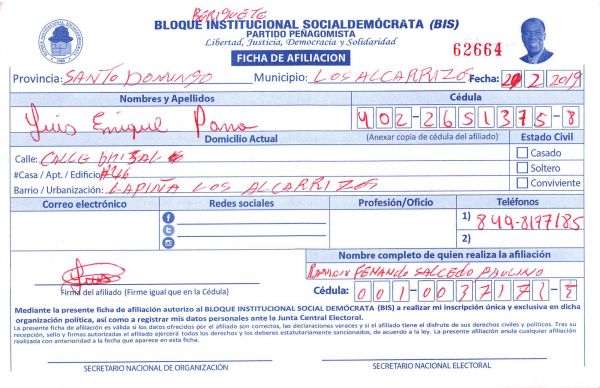 BERIQUETE
BLOQUE INSTITUCIONAL SOCIALDEMÓCRATA (BIS)
PARTIDO PEÑAGOMISTA
Libertad, Justicia, Democracia y Solidaridad
62664
FICHA DE AFILIACION
Provincia: SANTO DOMINGO Municipio: LOS ALCARRIZOS Fecha: 2 2019
Nombres y Apellidos Cédula
Luis Enrique 402-2651375-8
Domicilio Actual (Anexar copia de cédula del afiliado) Estado Civil
Calle: CALLE
#Casa / Apt. / Edificio #46
Barrio / Urbanización: LAPIÑA LOS ALCARRIZOS
Casado
Soltero
Conviviente
Correo electrónico Redes sociales Profesión/Oficio Teléfonos
1) 849-8177185
2)
Nombre completo de quien realiza la afiliación
Ramon FENANDO SALCEDO PAULINO
Luis
Firma del afiliado (Firme igual que en la Cédula)
Cédula: 001-0037171-
Mediante la presente ficha de afiliación autorizo al BLOQUE INSTITUCIONAL SOCIAL DEMÓCRATA (BIS) a realizar mi inscripción única y exclusiva en dicha
organización política, así como a registrar mis datos personales ante la Junta Central Electoral.
La presente ficha de afiliación es válida si los datos ofrecidos por el afiliado son correctos, las declaraciones veraces y si el afiliado tiene el disfrute de sus derechos civiles y políticos. Tras su
recepción, sello y firmas autorizadas el afiliado ejercerá todos los derechos y los deberes estatutariamente sancionados, de acuerdo a la ley. La presente afiliación anula cualquier afiliación
realizada con anterioridad a la fecha que aparece en esta ficha.
SECRETARIO NACIONAL DE ORGANIZACIÓN SECRETARIO NACIONAL ELECTORAL